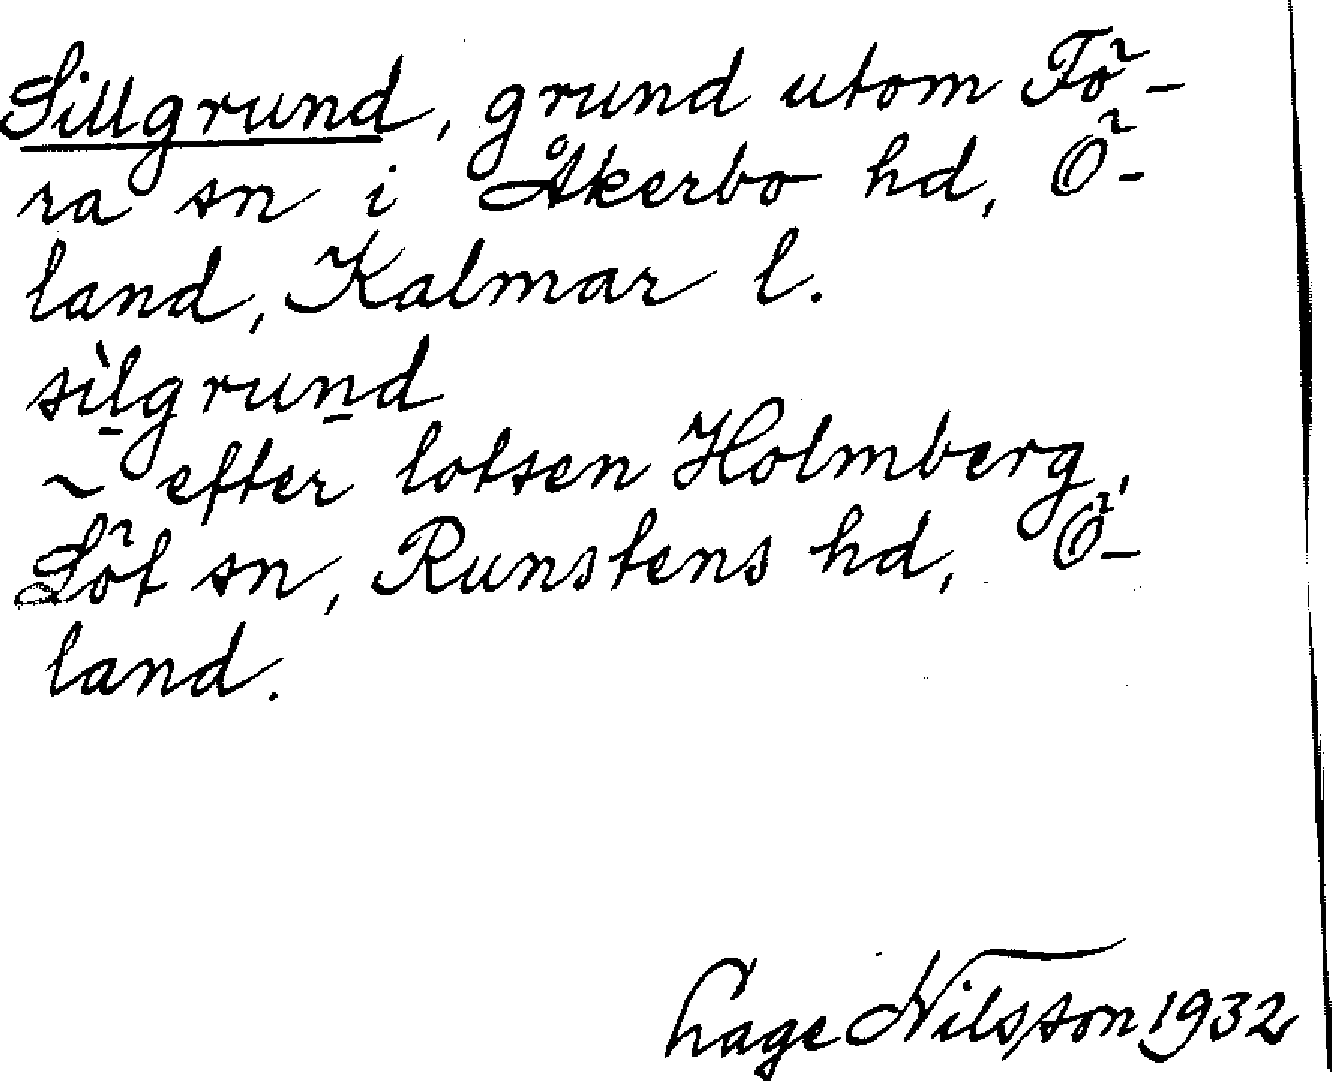 Sillgrund, grund utom Fö-
ra sn i Åkerbo hd, Ö-
land, Kalmar l.
sìl̠grun̠d
~ efter lotsen Holmberg,
Löt sn, Runstens hd, Ö-
land.
hage Nilsson 1932